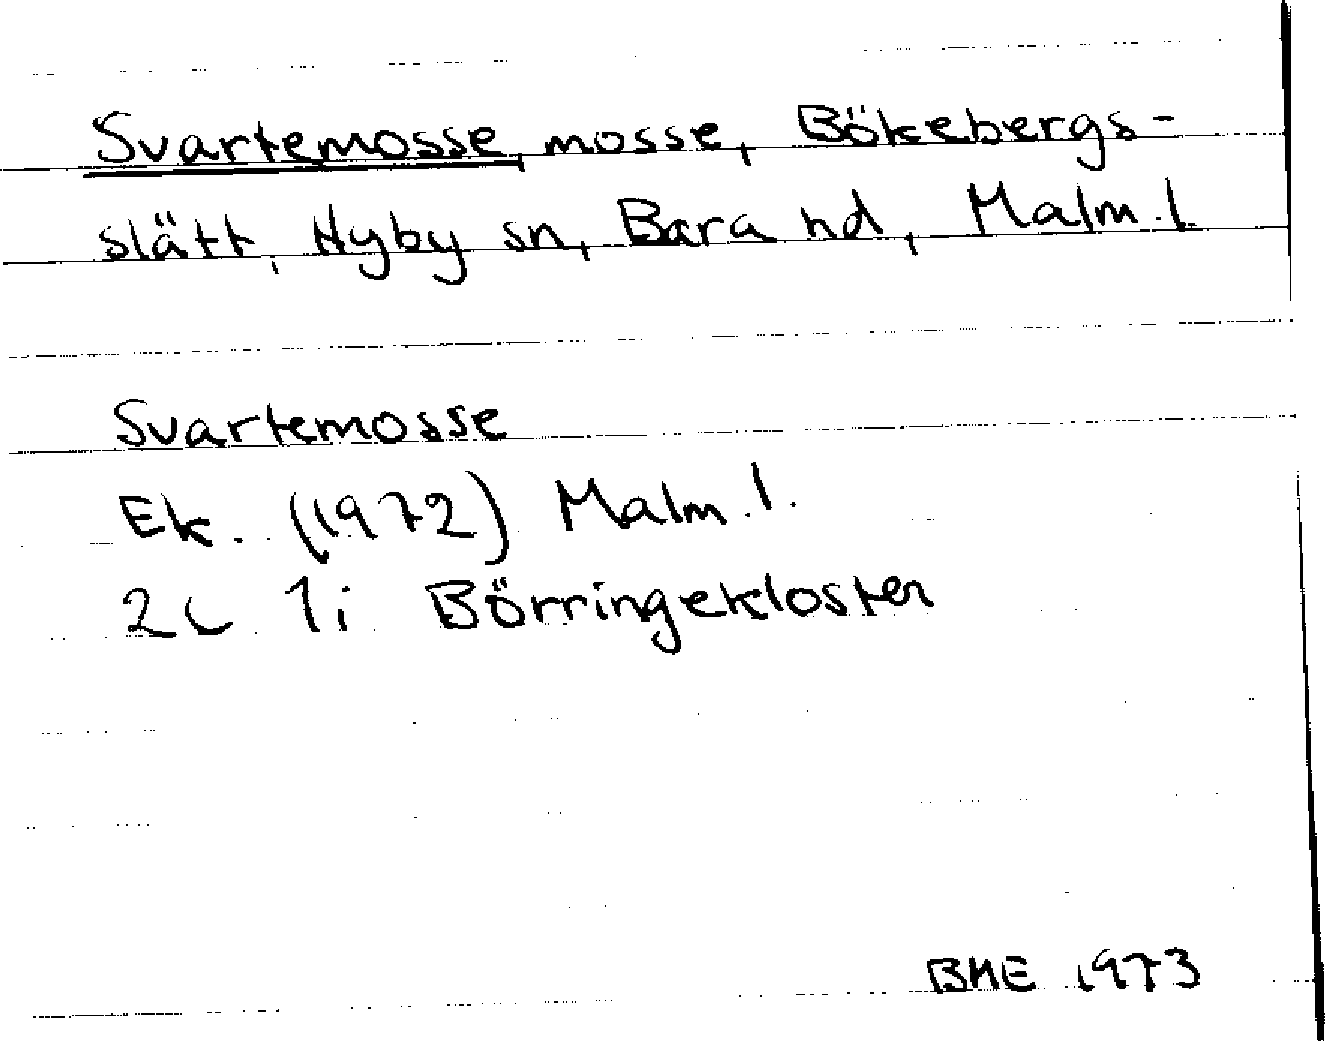 Svartemosse, mosse, Bökebergs-
slätt, Hyby sn, Bara hd, Malm.l.
Svartemosse
Ek. (1972) Malm.l.
2C 1i Börringekloster
BME 1973